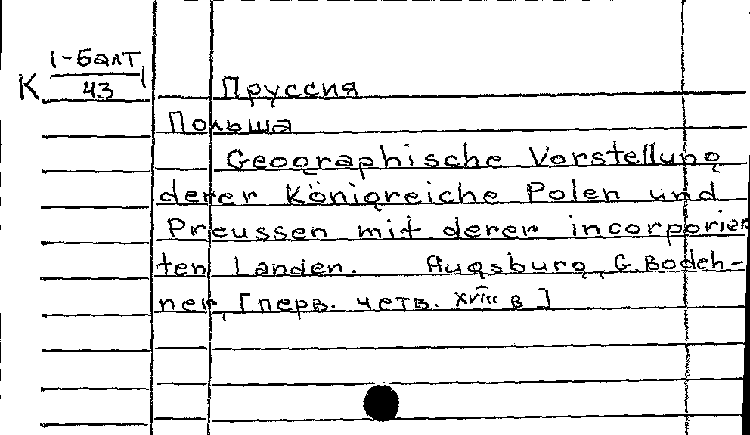 1-Балт
К 43 1
Пруссия
Польша
Geographische Vorstellung
derer Königreiche Polen und
Preussen mit derer incorporier
ten Landen. Augsburg, G. Bodeh-
ner, [перв. четв. XVIII в]